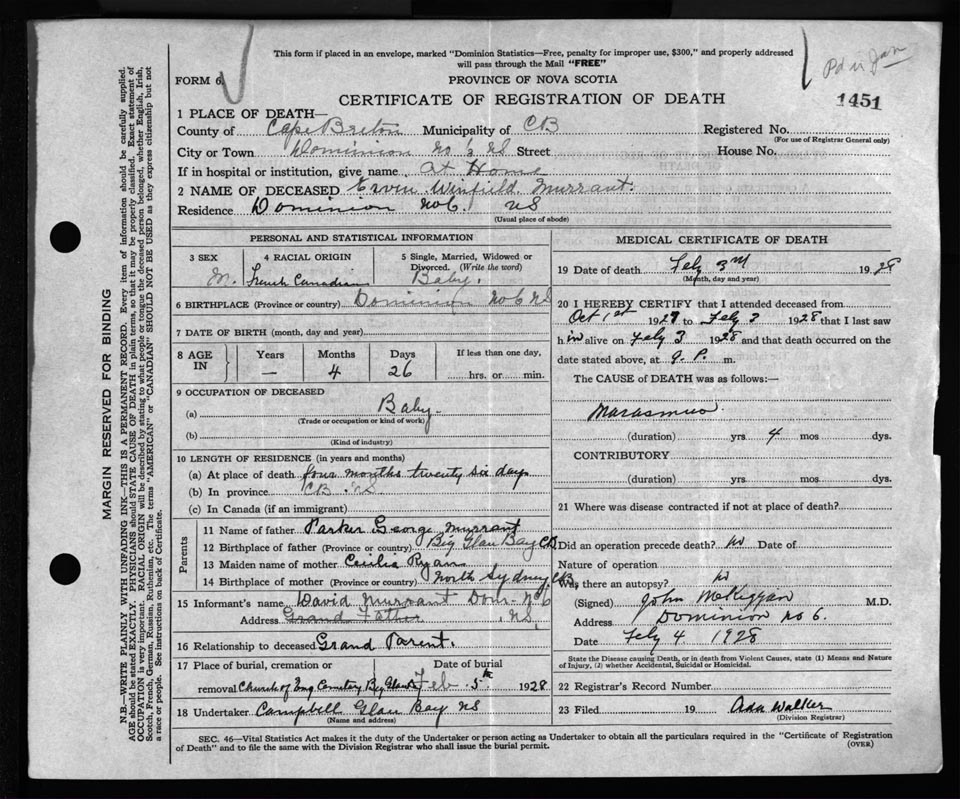 This form if placed in an envelope, marked "Dominion Statistics—Free, penalty for improper use, $300," and properly addressed
will pass through the Mail "FREE"
Pd 11 Jan
FORM 6
PROVINCE OF NOVA SCOTIA
CERTIFICATE OF REGISTRATION OF DEATH
1451
1 PLACE OF DEATH—
County of Cape Breton Municipality of CB Registered No.
(For use of Registrar General only)
City or Town Dominion No NS Street House No.
If in hospital or institution, give name At Home
2 NAME OF DECEASED Winfield Murrant.
Residence Dominion No 6. NS
(Usual place of abode)
PERSONAL AND STATISTICAL INFORMATION
3 SEX 4 RACIAL ORIGIN 5 Single, Married, Widowed or
Divorced. (Write the word)
M. French Canadian Baby.
6 BIRTHPLACE (Province or country) Dominion No 6 NS
7 DATE OF BIRTH (month, day and year)
8 AGE IN Years Months Days If less than one day,
— 4 26 hrs. or min.
9 OCCUPATION OF DECEASED
(a) Baby
(Trade or occupation or kind of work)
(b)
(Kind of industry)
10 LENGTH OF RESIDENCE (in years and months)
(a) At place of death four months twenty six days
(b) In province CB. NS
(c) In Canada (if an immigrant)
Parents
11 Name of father Parker George Murrant
12 Birthplace of father (Province or country) Big Glau Bay CB
13 Maiden name of mother Cecilia Ryan
14 Birthplace of mother (Province or country) North Sydney CB
15 Informant's name David Murrant Dom- No 6
Address Grand Father NS,
16 Relationship to deceased Grand Parent.
17 Place of burial, cremation or Date of burial
removal Church of Eng Cemetry Big Glace Feb 5th 1928
18 Undertaker Campbell Glau Bay NS
(Name and address)
MEDICAL CERTIFICATE OF DEATH
19 Date of death Feb 3rd 1928
(Month, day and year)
20 I HEREBY CERTIFY that I attended deceased from
Oct 1st 1927 to Feb 3 1928 that I last saw
h im alive on Feb 3 1928 and that death occurred on the
date stated above, at 9. P. m.
The CAUSE of DEATH was as follows:—
Marasmus
(duration) yrs. 4 mos dys.
CONTRIBUTORY
(duration) yrs. mos dys.
21 Where was disease contracted if not at place of death?
Did an operation precede death? no Date of
Nature of operation
Was there an autopsy? no
(Signed) John McKiggan M.D.
Address Dominion No 6.
Date Feb 4 1928
State the Disease causing Death, or in death from Violent Causes, state (1) Means and Nature
of Injury, (2) whether Accidental, Suicidal or Homicidal.
22 Registrar's Record Number
23 Filed 19 Ada Walker
(Division Registrar)
SEC. 46—Vital Statistics Act makes it the duty of the Undertaker or person acting as Undertaker to obtain all the particulars required in the "Certificate of Registration
of Death" and to file the same with the Division Registrar who shall issue the burial permit.
(OVER)
MARGIN RESERVED FOR BINDING
N.B.—WRITE PLAINLY WITH UNFADING INK—THIS IS A PERMANENT RECORD. Every item of information should be carefully supplied.
AGE should be stated EXACTLY. PHYSICIANS should STATE CAUSE OF DEATH in plain terms, so that it may be properly classified. Exact statement of
OCCUPATION is very important. RACIAL ORIGIN will be described by stating to what people or tongue the deceased person belonged, whether English, Irish,
Scotch, French, German, Russian, Ruthenian, etc. The terms "AMERICAN" or "CANADIAN" SHOULD NOT BE USED as they express citizenship but not
a race or people. See instructions on back of Certificate.